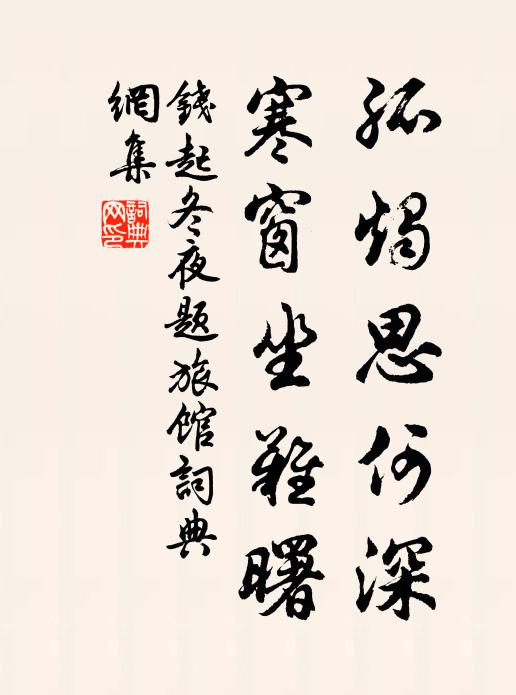 孤燭思何深
寒窗坐難曙
錢起冬夜题旅館詞典
網集
詞典
网印